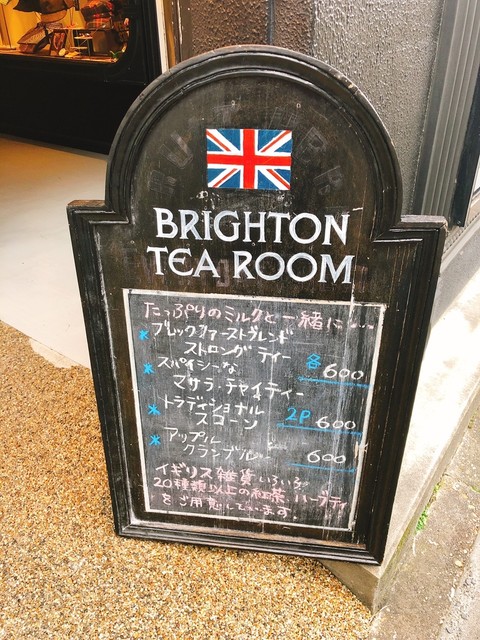 BRIGHTON
TEA ROOM
たっぷりのミルクと一緒に...
*ブレックファーストブレンド
ストロングティー
各600
*スパイシーな
マサラ・チャイティー
*トラディショナル
スコーン
2P 600
*アップル
クランブル
600
イギリス雑貨いろいろ
20種類以上の紅茶 ハーブティ
をご用意しています。